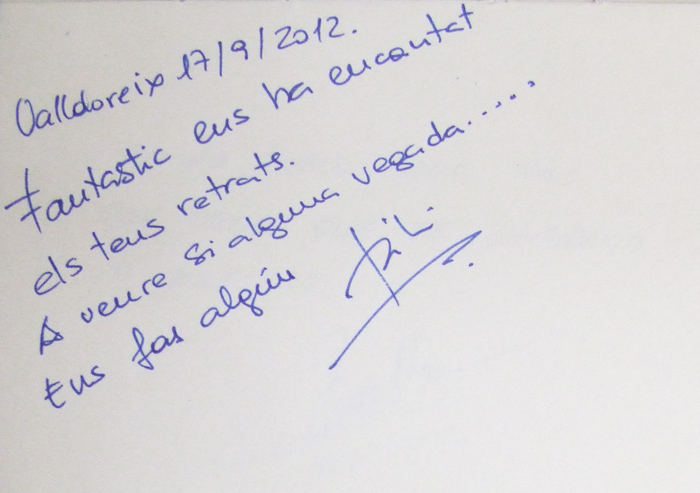 Valldoreix 17/9/2012.
Fantastic ens ha encantat
els teus retrats.
A veure si alguna vegada.....
Ens fas algún